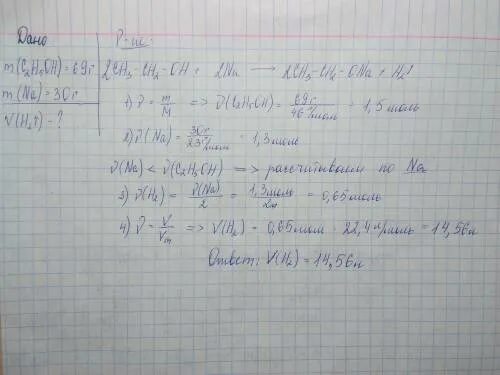 Дано
m(C₂H₅OH)=69г
m(Na)=30г
V(H₂↑)-?
Р-ие:
2CH₃-CH₂-OH + 2Na → 2CH₃-CH₂-ONa + H₂↑
1) ν = m/M => ν(C₂H₅OH) = 69г/46г/моль = 1,5моль
2) ν(Na) = 30г/23г/моль = 1,3моль
ν(Na) < ν(C₂H₅OH) => рассчитываем по Na
3) ν(H₂) = ν(Na)/2 = 1,3моль/2 = 0,65моль
4) ν = V/Vm => V(H₂) = 0,65моль · 22,4л/моль = 14,56л
Ответ: V(H₂) = 14,56л